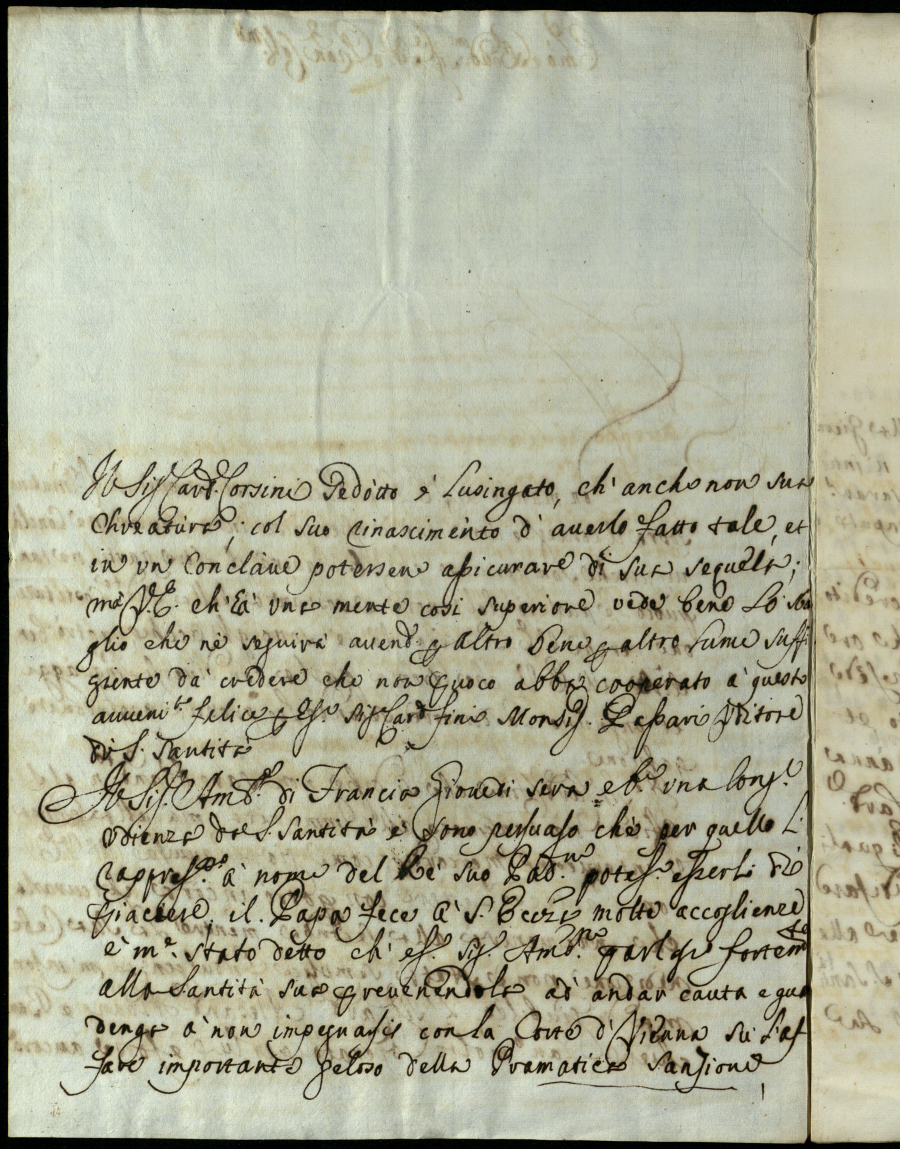 Il Sig.r Card. Corsini ridotto e lusingato, ch' anche non sua
Chreatura; col suo rinascimento d' auerlo fatto tale, et
in vn Conclaue potersene assicurare di sua sequela;
mà V.E. ch' hà vna mente così superiore vede bene lo sba
glio che ne seguirà auend. p altro bene p altro lume suffi
ziente dà credere che non puoco abbi cooperato à questo
auueni.to felice p Ess.e Sig.r Card. Monsig. Passari Vditore
di S. Santità
Il Sig.r Amb.r di Francia Giouedi sera ebbe vna long.a
vdienza da S. Santità e sono persuaso che per quello li
rappres. à nome del Rè suo Pad.ne potess. esserli di
piacere, il Papa fece à S. Eccza molte accoglienze
e m'è stato detto ch' ess. Sig. Amb.re parlasse fortem.te
alla Santità sua preuenendola ad' andar cauta e gua
denga à non impegnarsi con la Corte di Vienna sù l'af
fare importante geloso della Pramatica Sanzione